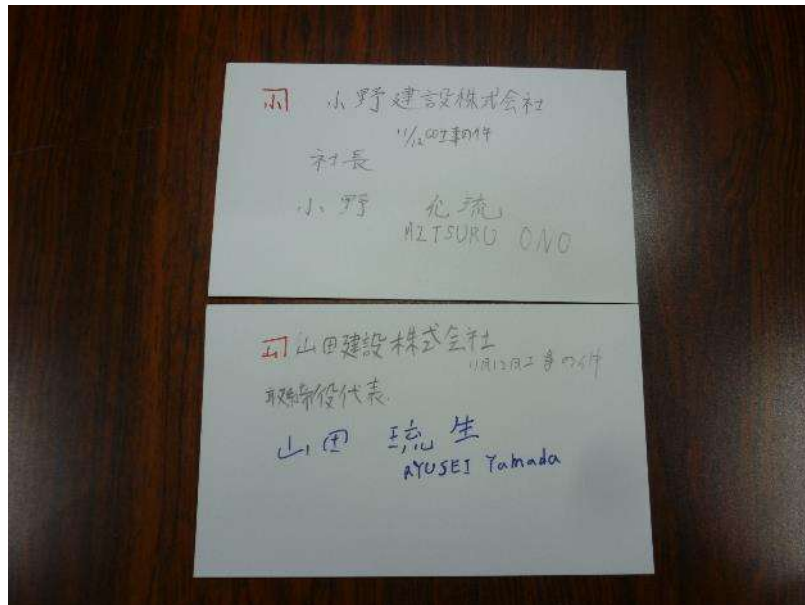 小 小野建設株式会社
11/12の工事の件
社長
小野 允流
MITSURU ONO
山 山田建設株式会社
11月12日工事の件
取締役代表
山田 琉生
RYUSEI Yamada